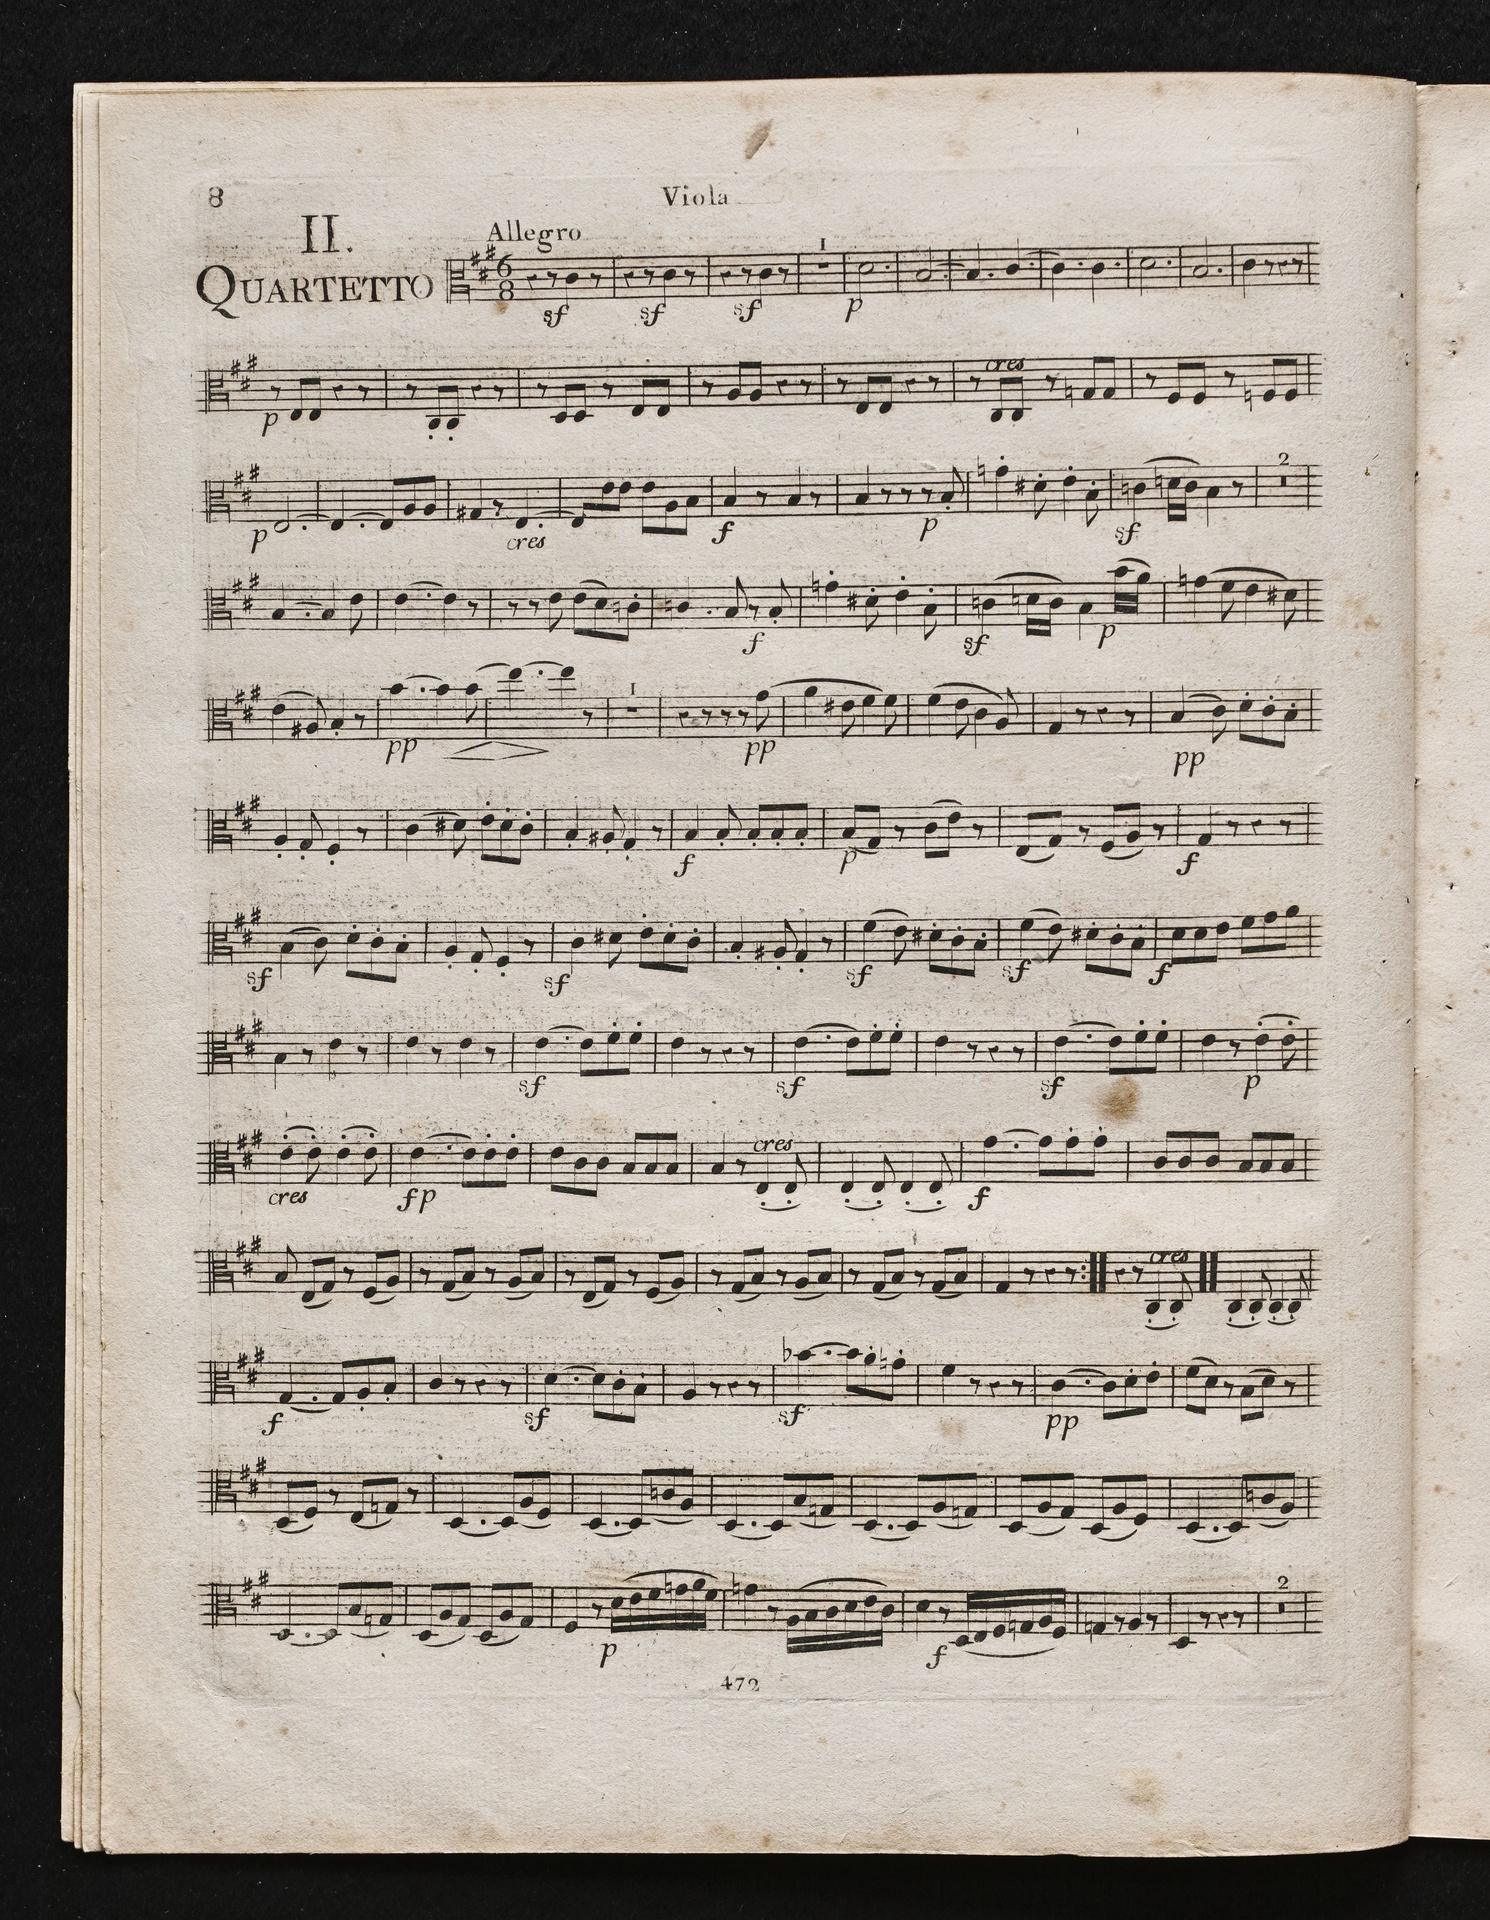 8
Viola
II.
Allegro
QUARTETTO
6
8
1
sf sf sf p
cres
p
2
p cres f p sf
f sf p
1
pp pp pp
f p f
sf sf sf sf f
sf sf sf p
cres
cres fp f
cres
f sf sf pp
2
p f
472